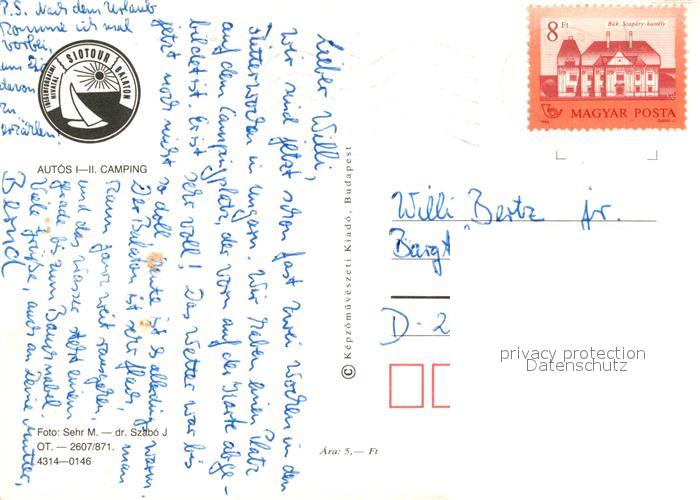 P.S. Nach dem Urlaub
komme ich mal
vorbei,
um Dir
davon
zu
erzählen!
SIOTOUR BALATON
IDEGENFORGALMI HIVATAL
AUTÓS I—II. CAMPING
Lieber Willi,
wir sind jetzt schon fast zwei Wochen in den
Flitterwochen in Ungarn. Wir haben einen Platz
auf dem Campingplatz, der vorn auf der Karte abge-
bildet ist. Er ist sehr voll! Das Wetter war bis
jetzt noch nicht so doll, heute ist es allerdings warm.
Der Balaton ist sehr flach, man
kann ganz weit rausgehen,
und das Wasser steht einem
grade bis zum Bauchnabel.
Viele Grüße, auch an Deine Mutter,
Bernd
Foto: Sehr M. — dr. Szabó J
OT. — 2607/871.
4314—0146
Ára: 5,— Ft
© Képzőművészeti Kiadó, Budapest
8 Ft
Bük, Szapáry-kastély
MAGYAR POSTA
1986
Willi Bertz jr.
Bargt
D-2
privacy protection
Datenschutz